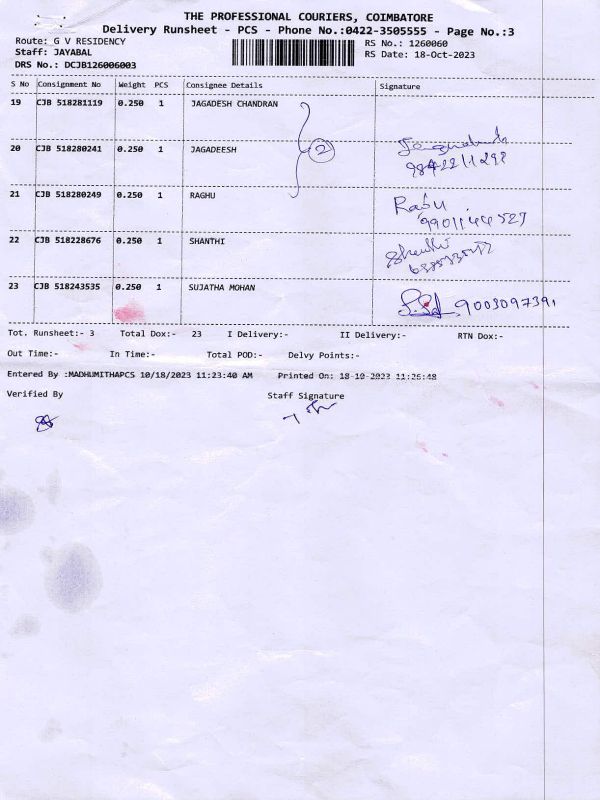 THE PROFESSIONAL COURIERS, COIMBATORE
Delivery Runsheet - PCS - Phone No.:0422-3505555 - Page No.:3
Route: G V RESIDENCY RS No.: 1260060
Staff: JAYABAL RS Date: 18-Oct-2023
DRS No.: DCJB126006003
S No Consignment No Weight PCS Consignee Details Signature
19 CJB 518281119 0.250 1 JAGADESH CHANDRAN
20 CJB 518280241 0.250 1 JAGADEESH
2
9842211298
21 CJB 518280249 0.250 1 RAGHU
9901144527
22 CJB 518228676 0.250 1 SHANTHI
Shanthi
23 CJB 518243535 0.250 1 SUJATHA MOHAN
9003097391
Tot. Runsheet:- 3 Total Dox:- 23 I Delivery:- II Delivery:- RTN Dox:-
Out Time:- In Time:- Total POD:- Delvy Points:-
Entered By :MADHUMITHAPCS 10/18/2023 11:23:40 AM Printed On: 18-10-2023 11:26:48
Verified By Staff Signature